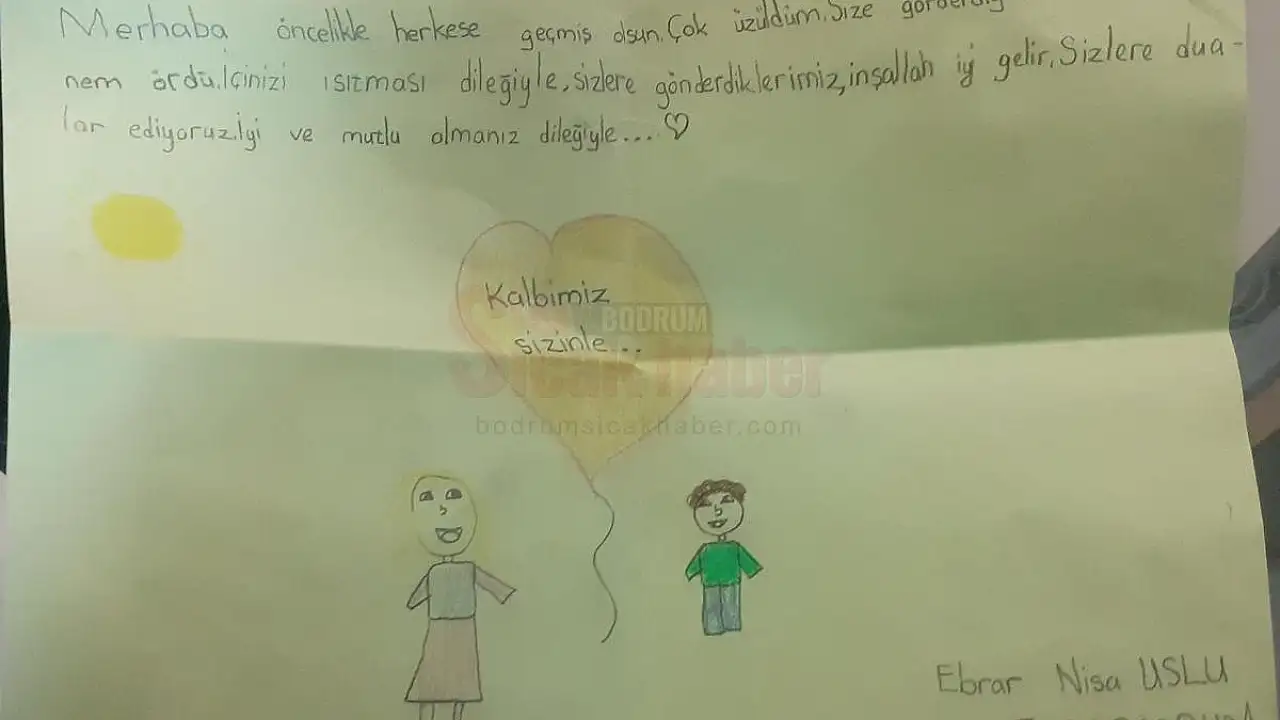 Merhaba öncelikle herkese geçmiş olsun. Çok üzüldüm. Size
nem ördü. İçinizi ısıtması dileğiyle, sizlere gönderdiklerimiz, inşallah iyi gelir. Sizlere dua-
lar ediyoruz. İyi ve mutlu olmanız dileğiyle... ♡
Kalbimiz
sizinle...
BODRUM
Sıcak Haber
bodrumsicakhaber.com
Ebrar Nisa USLU